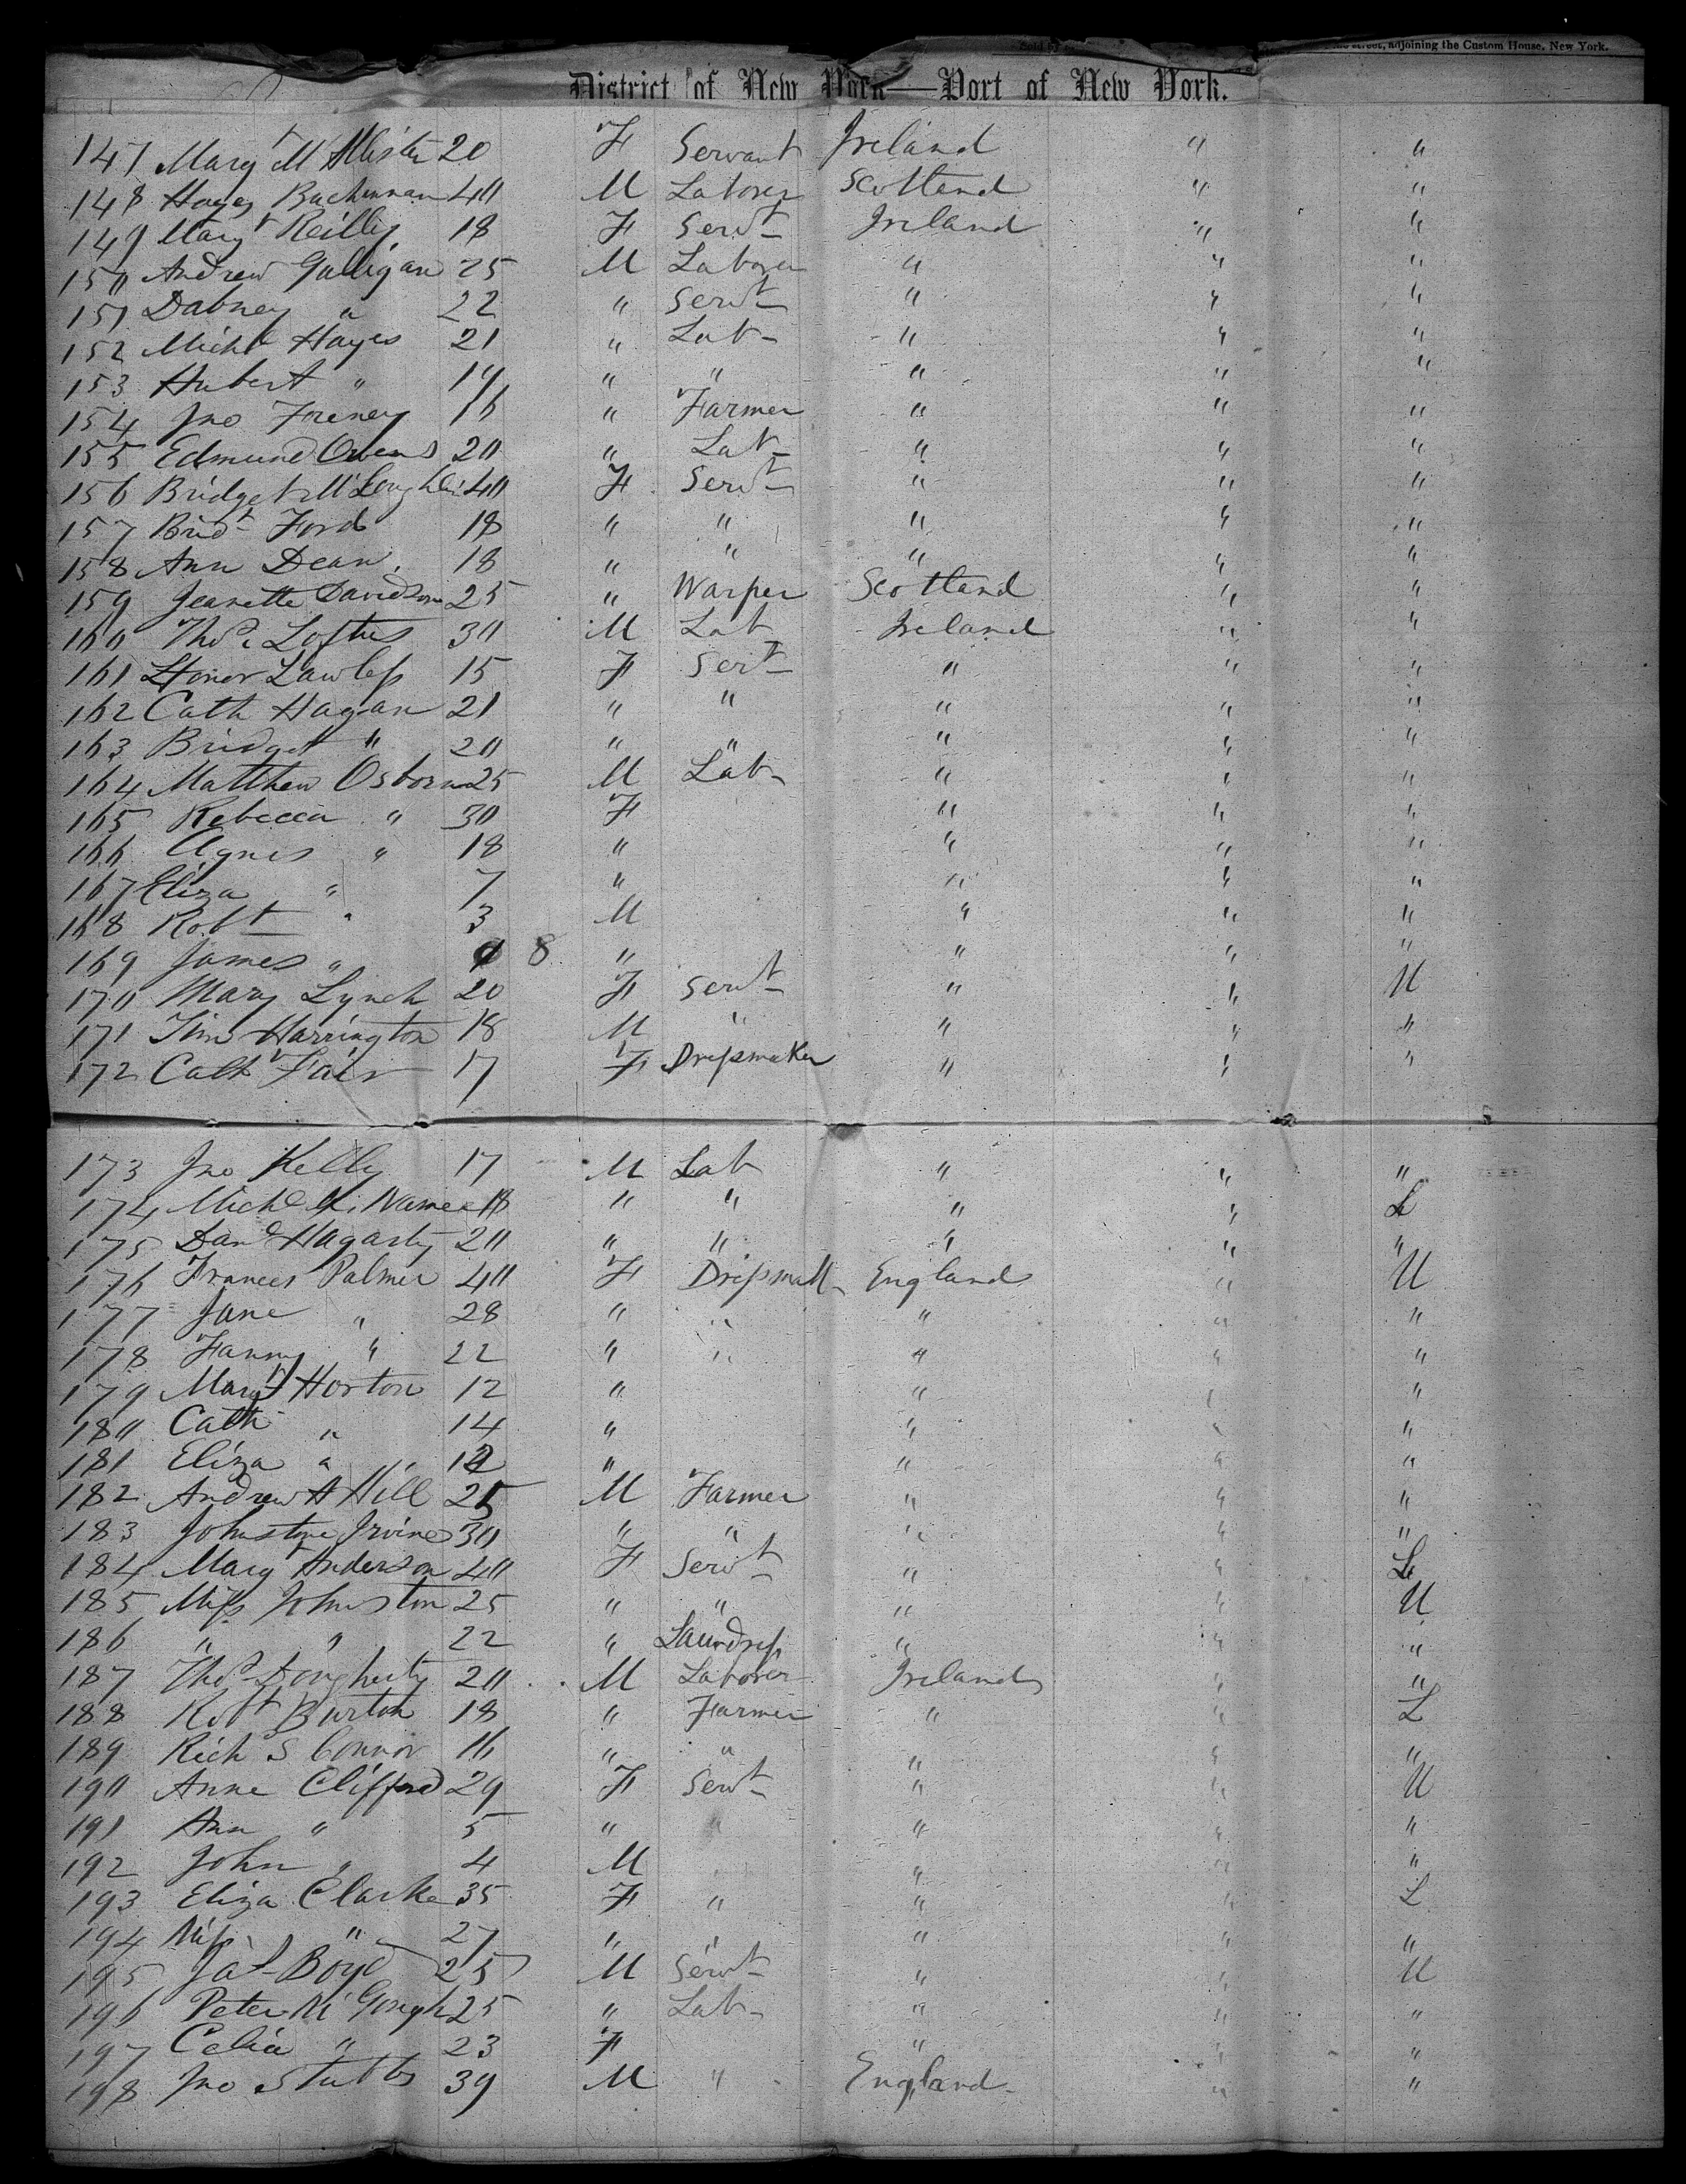 adjoining the Custom House, New York.
District of New York—Port of New York.
147 Mary M'Allister 20 F Servant Ireland " "
148 Hayes Buchannan 40 M Laborer Scotland " "
149 Margt Reilly 18 F Servt Ireland " "
150 Andrew Galligan 25 M Laborer " " "
151 Dabney " 22 " Servt " " "
152 Michl Hayes 21 " Lab " " "
153 Hubert " 19 " " " " "
154 Jno Foreney 16 " Farmer " " "
155 Edmund Owens 20 " Lab " " "
156 Bridget M'Loughlin 40 F Servt " " "
157 Bridt Ford 18 " " " " "
158 Ann Dean 18 " " " " "
159 Jeanette Davidson 25 " Warper Scotland " "
160 Thos Loftus 30 M Lab Ireland " "
161 Honor Lawless 15 F Servt " " "
162 Cath Hagan 21 " " " " "
163 Bridget " 20 " " " " "
164 Matthew Osborn 25 M Lab " " "
165 Rebecca " 30 F " " "
166 Agnes " 18 " " " "
167 Eliza " 7 " " " "
168 Robt " 3 M " " "
169 James " 8 " " " "
170 Mary Lynch 20 F Servt " " U
171 Tim Harrington 18 M " " " "
172 Cath Fair 17 F Dressmaker " " "
173 Jno Kelly 17 M Lab " " "
174 Michl Namee 18 " " " " L
175 Danl Hagarty 20 " " " " "
176 Frances Palmer 40 F Dressmak England " U
177 Jane " 28 " " " " "
178 Fanny " 22 " " " " "
179 Margt Horton 12 " " " "
180 Cath " 14 " " " "
181 Eliza " 12 " " " "
182 Andrew H Hill 25 M Farmer " " "
183 Johnstone Irvine 30 " " " " "
184 Margt Anderson 40 F Servt " " L
185 Miss Johnston 25 " " " " U
186 " " 22 " Laundress " " "
187 Thos Dougherty 20 M Laborer Ireland " "
188 Robt Burton 18 " Farmer " " L
189 Rich S Connor 16 " " " " "
190 Anne Clifford 29 F Servt " " U
191 Ann " 5 " " " " "
192 John " 4 M " " "
193 Eliza Clarke 35 F " " " L
194 Miss " 27 " " " " "
195 Jas Boyd 25 M Servt " " U
196 Peter M'Gough 25 " Lab " " "
197 Celia " 23 F " " "
198 Jno Stubbs 39 M " England " "